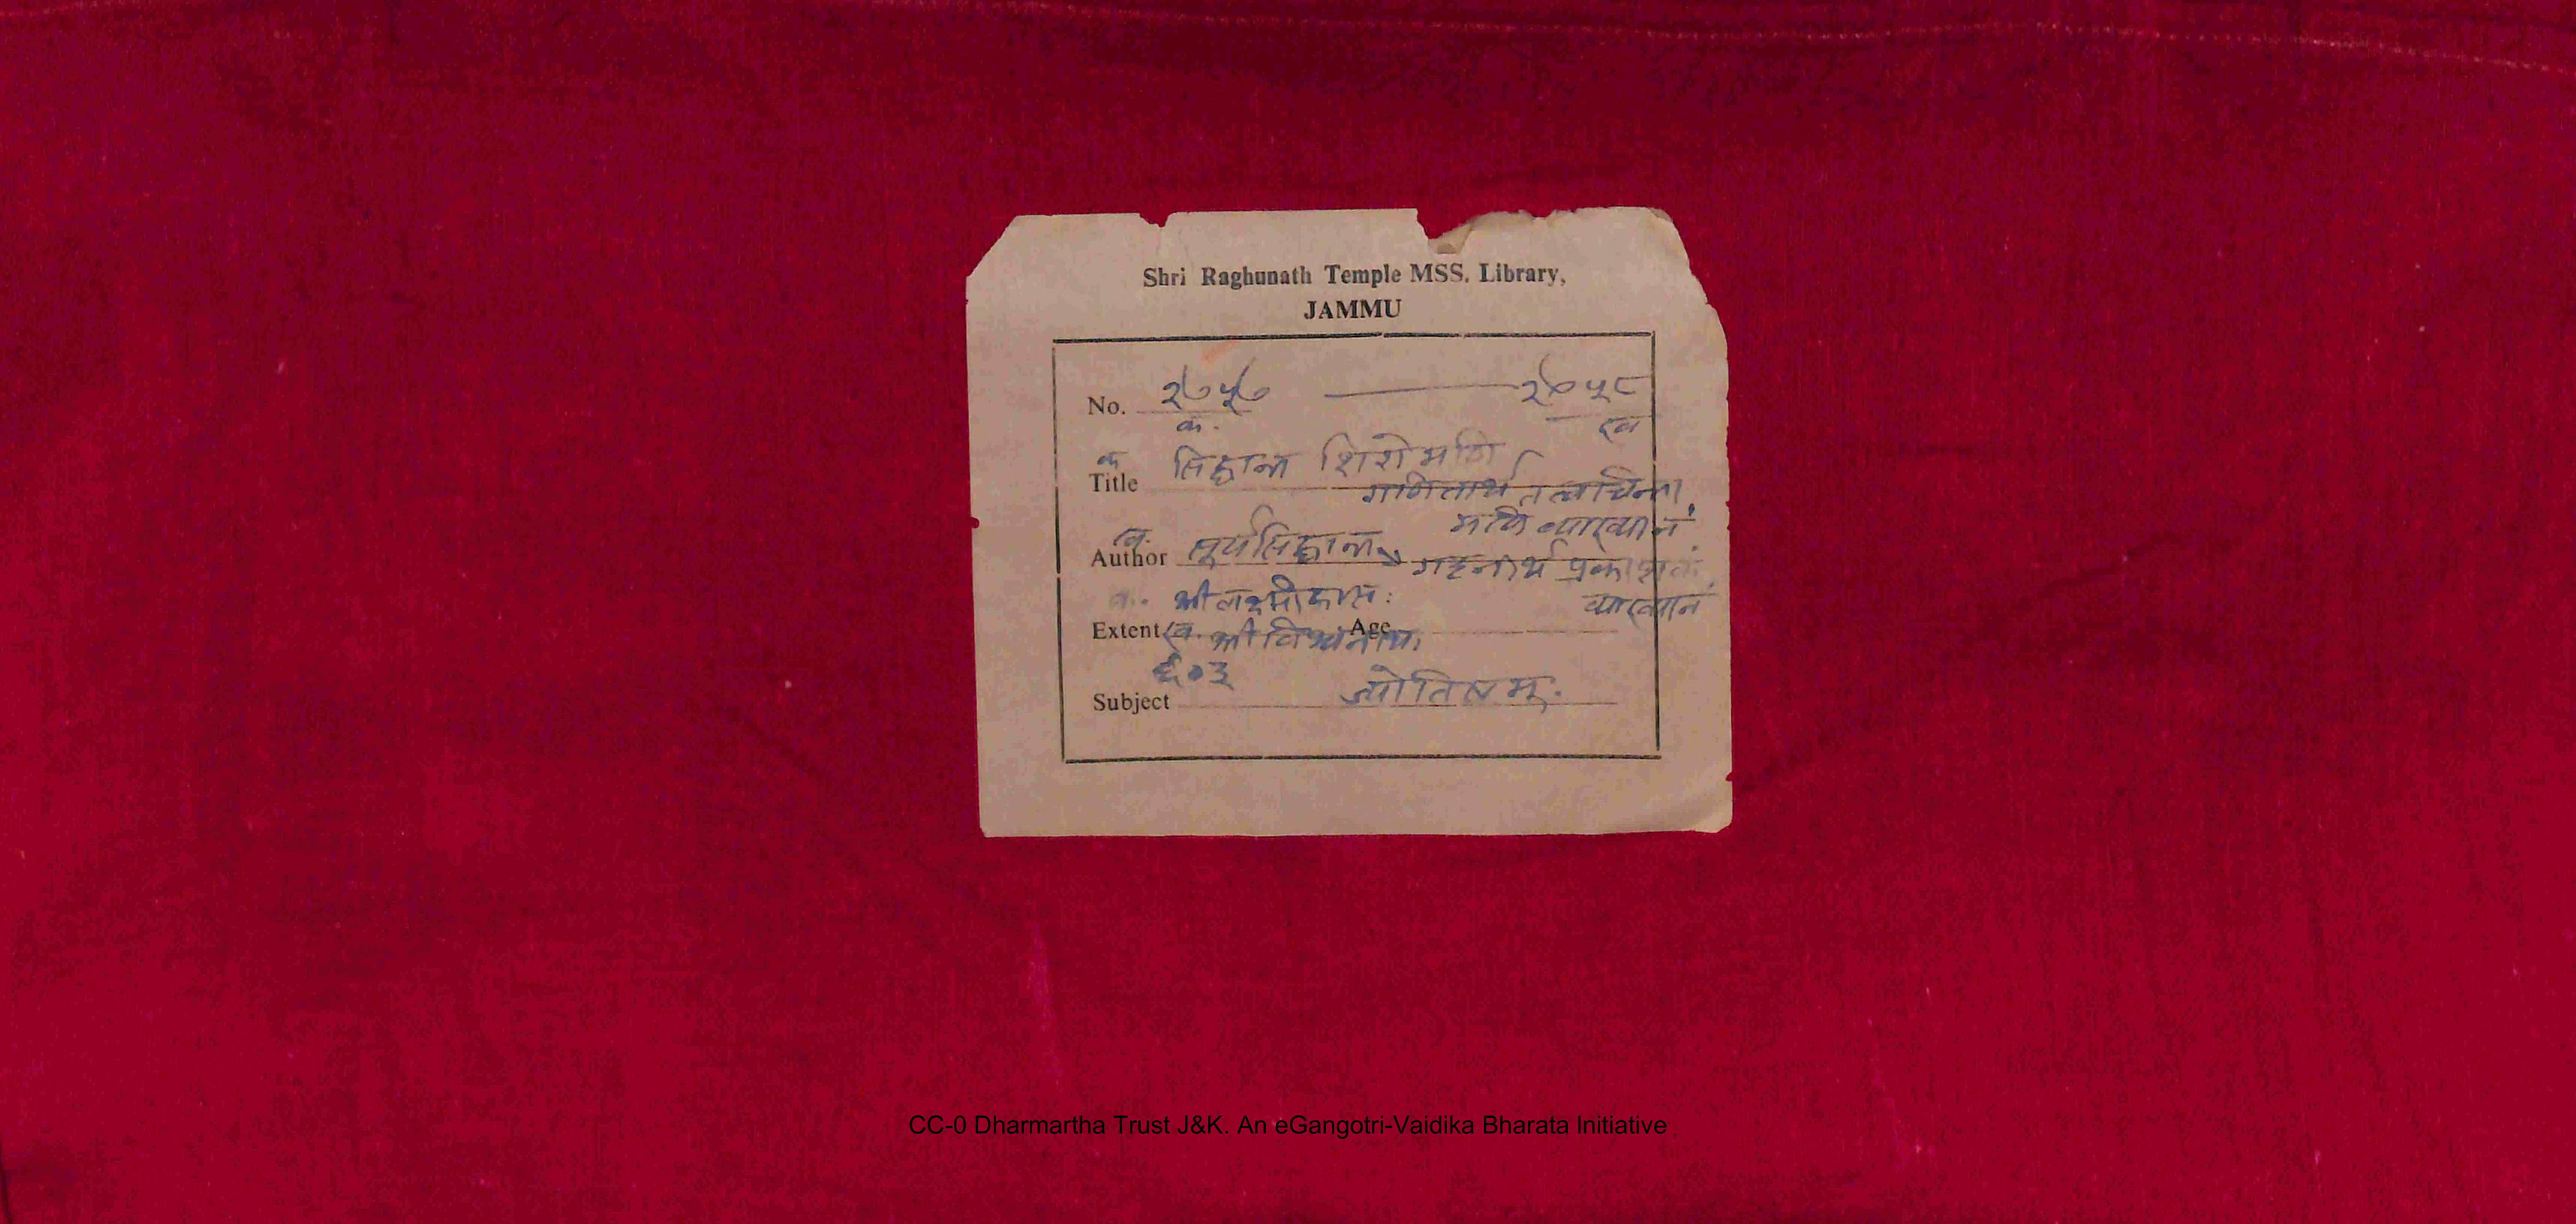 Shri Raghunath Temple MSS. Library,
JAMMU
No. २७५७ — २७५८
क. ख
क
Title सिद्धान्त शिरोमणि
गणितार्थ तत्वचिन्ता
मणि व्याख्यानं
ख.
Author सूर्यसिद्धान्त
गहनार्थ प्रकाशकं
क. श्रीलक्ष्मीदासः
व्याख्यानं
Extent ख. श्रीविश्वनाथ Age
६०३
Subject ज्योतिषम्.
CC-0 Dharmartha Trust J&K. An eGangotri-Vaidika Bharata Initiative